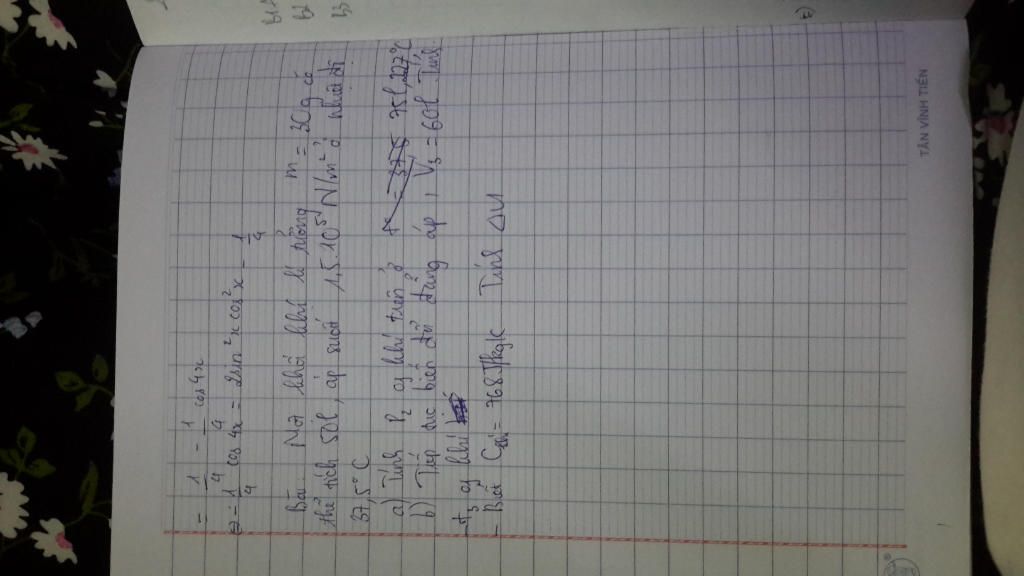 = 1/4 - 1/4 cos 4x
⇔ = 1/4 cos 4x = 2sin²x cos²x - 1/4
Bài: Một khối khí lí tưởng m = 30g có
thể tích 50l, áp suất 1,5.10⁵ N/m² ở nhiệt độ
37,5°C
a) Tính P₂ of khí trên ở 75l, 227°C
b) Tiếp tục biến đổi đẳng áp, V₃ = 60l Tính
- t₃ of khí
- Biết = 768J/kgK Tính ΔU
TÂN VĨNH TIẾN
b2
b3